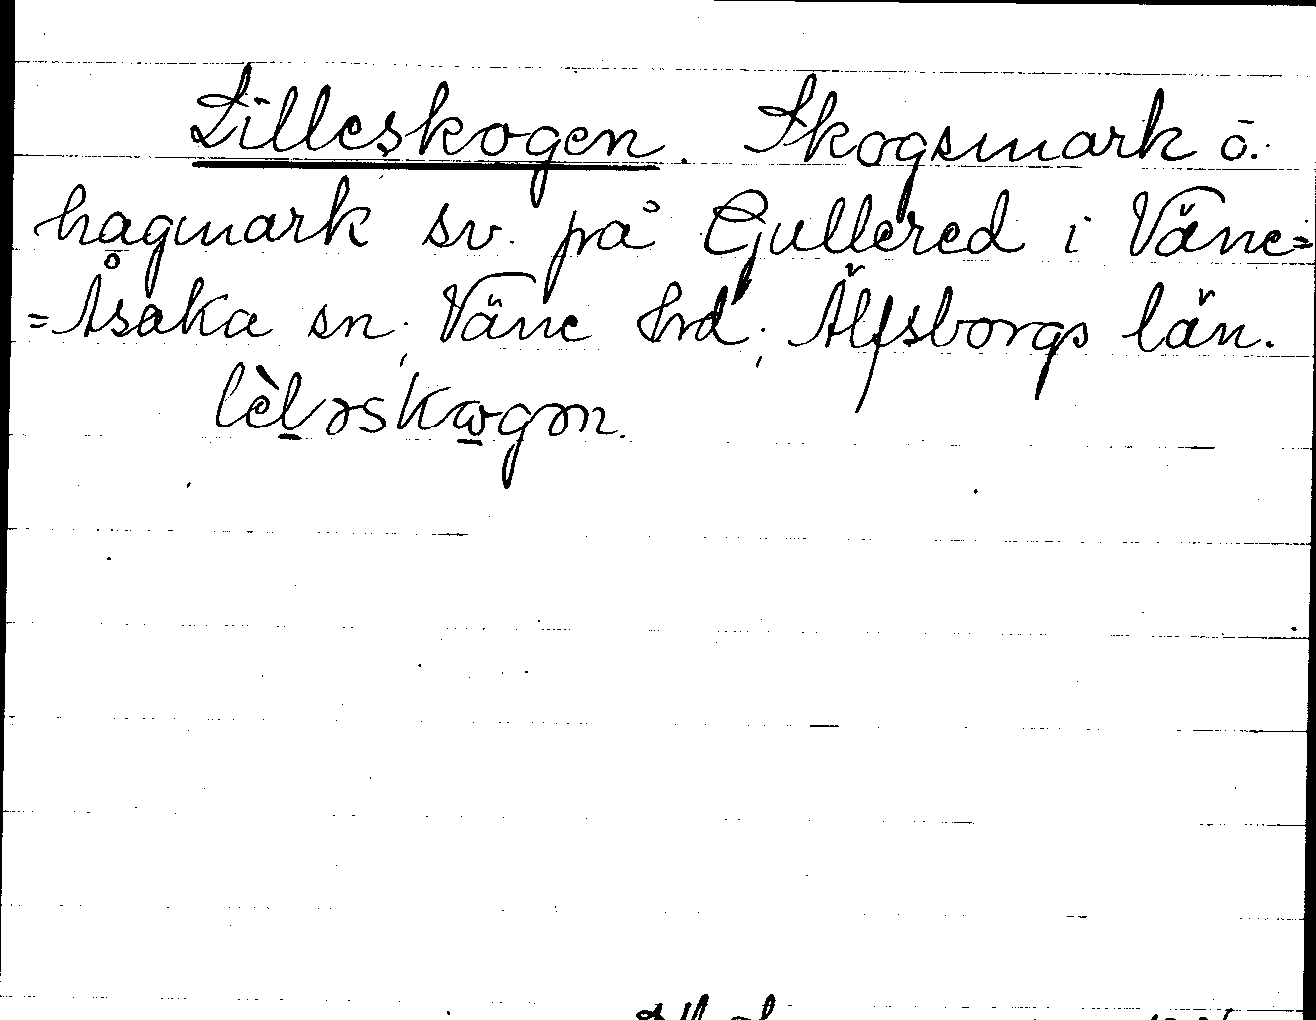 Lilleskogen. Skogsmark o.
hagmark sv. på Gullered i Väne=
=Åsaka sn, Väne hrd, Älfsborgs län.
lèl̠əskɷ̠gən.